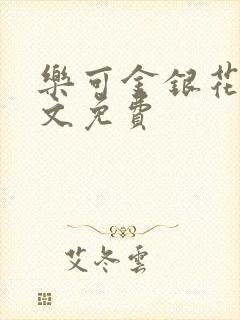 樂可金銀花
文免費
艾冬雲